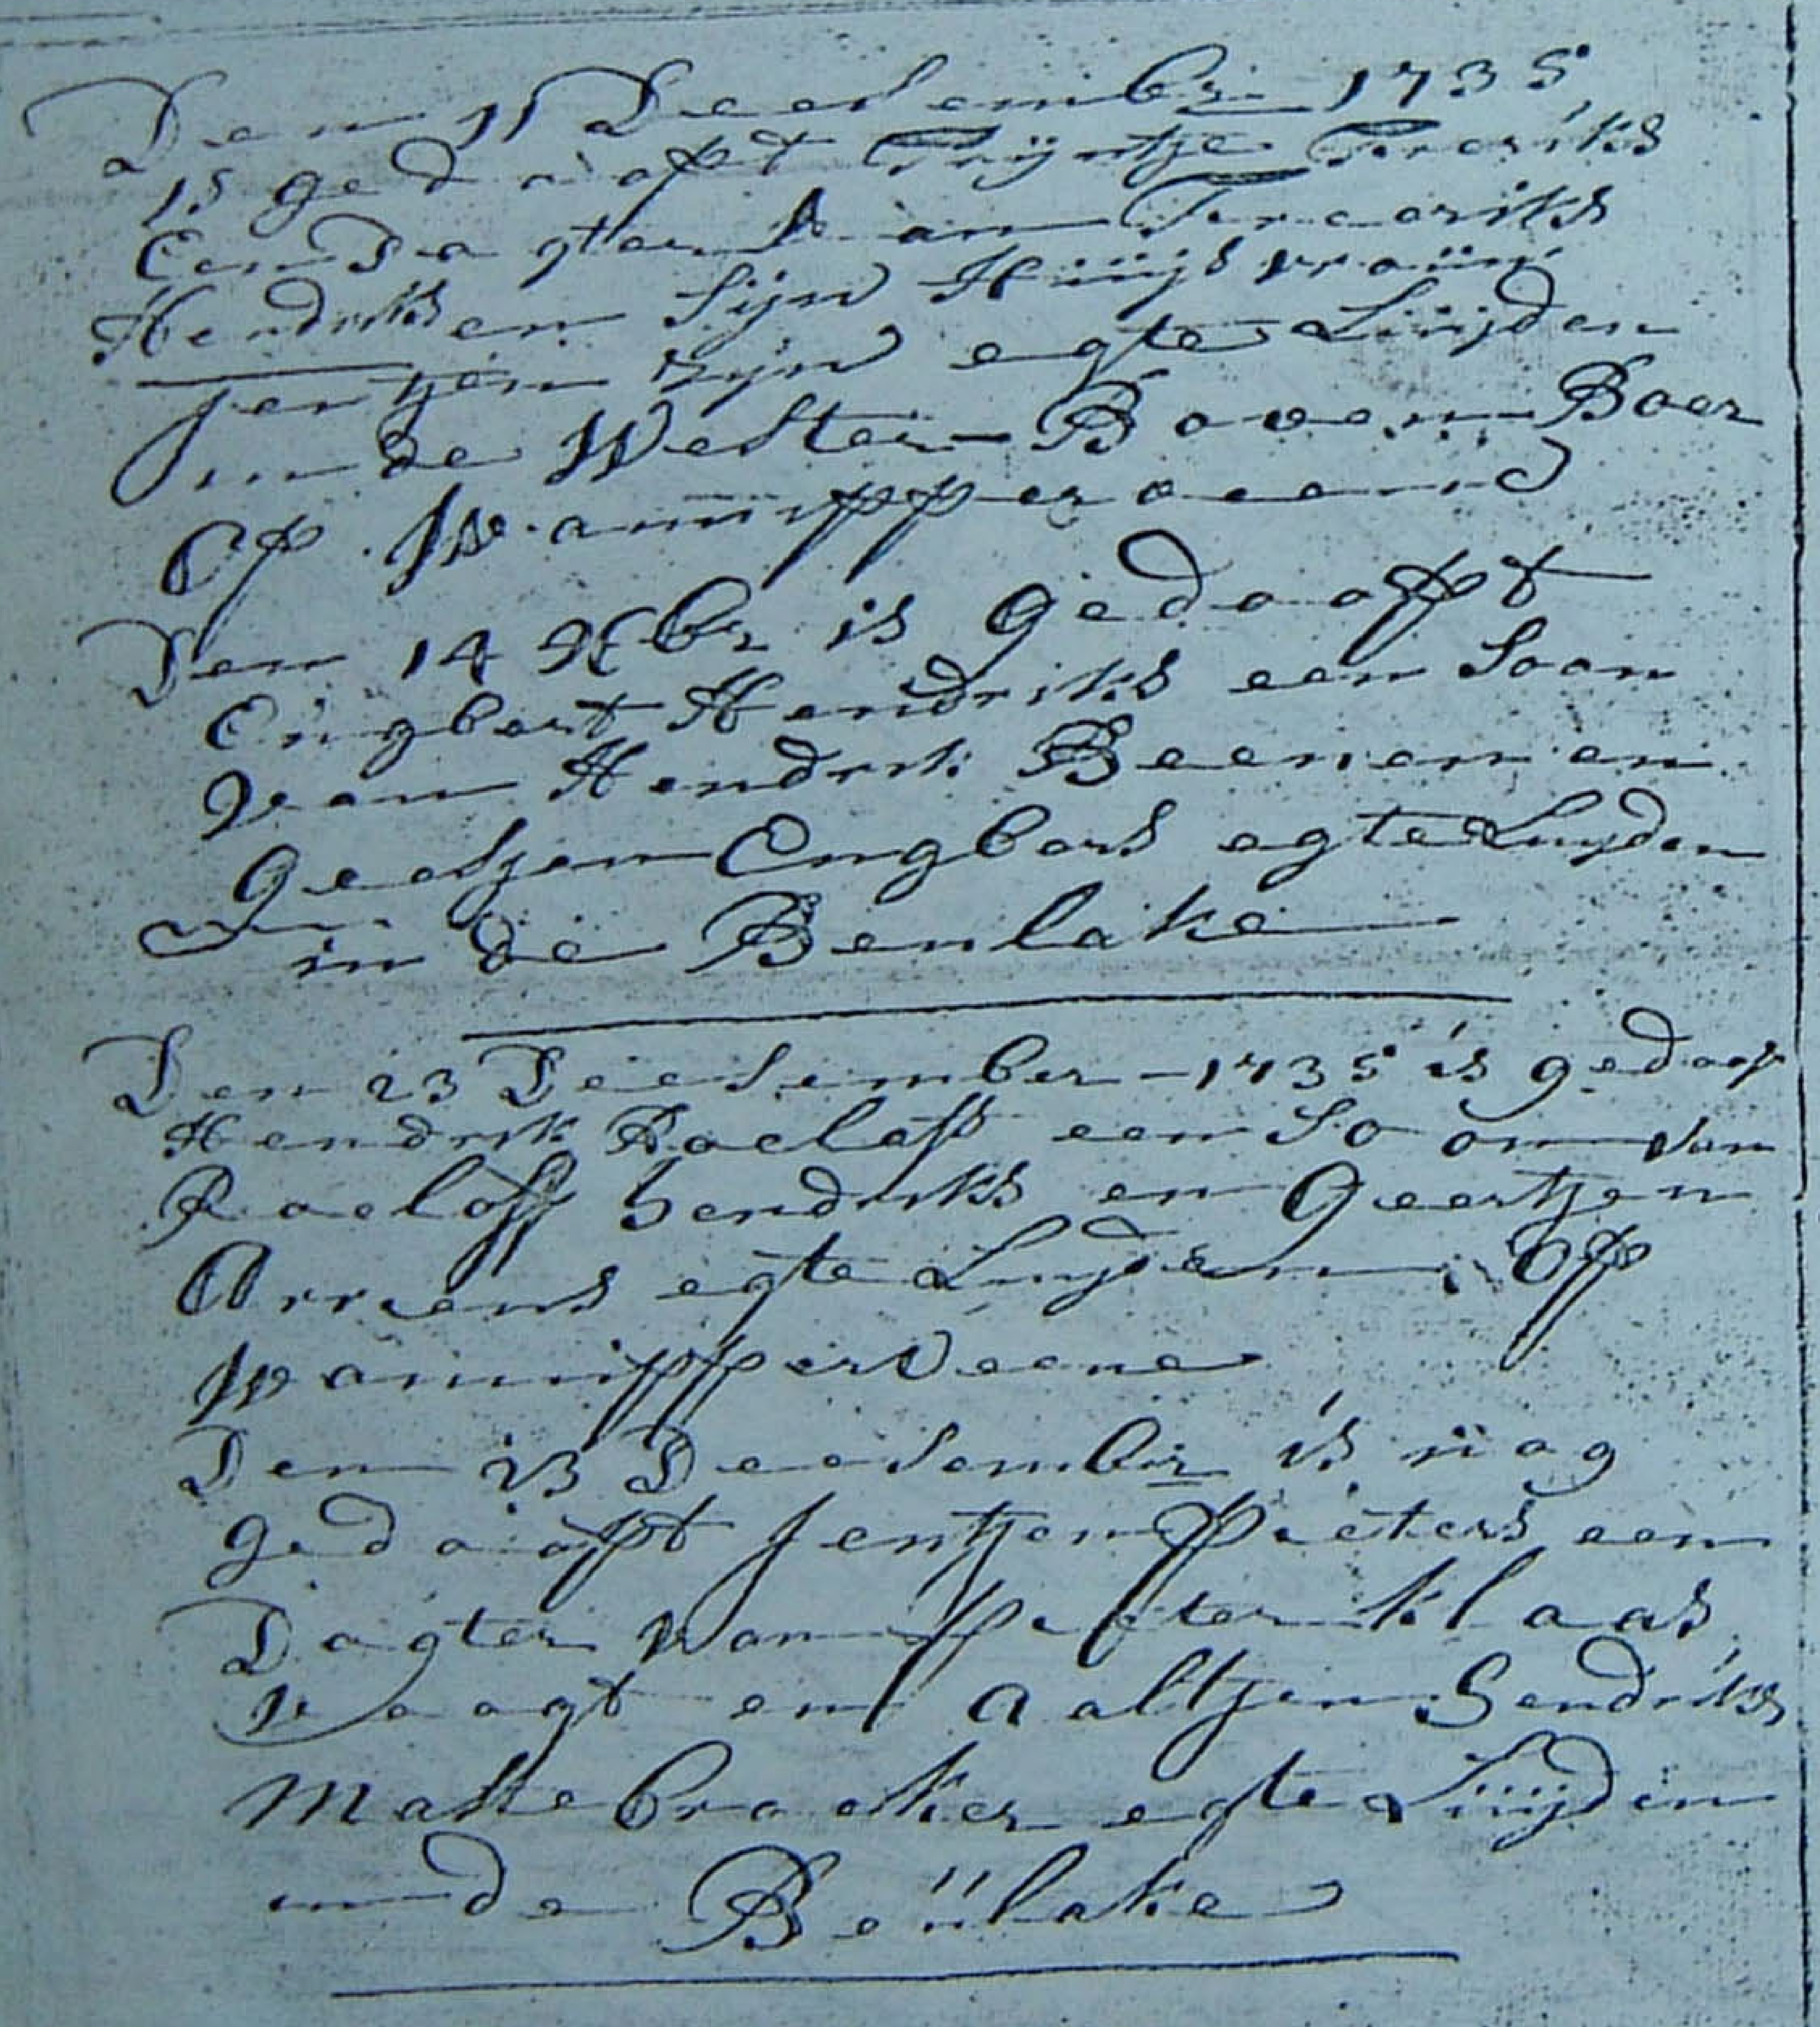 Den 11 Deesember 1735
is gedaapt Trijntje Freriks
Een Dagter van Frerriks
Hendriks en Sijn Huijsvrauw
Jentjen zijn egte Luijden
in de Wester-Boven Boer
Op Wanipperveen
Den 14 Xbr is gedaapt
Engbert Hendriks een Soon
van Hendrik Beenen en
Geesjen Engbers egte Luyden
in de Beulake
Den 23 Deesember - 1735 is gedaap
Hendrik Roelofs een Soon van
Roeloff Hendriks en Geertjen
Arrens egte Luyden Op
Wannipperveene
Den 23 Deesember is nog
gedaapt Jentjen Pieters een
Dagter van Pieter Klaas
Vaagt en Aaltjen Hendriks
Mastebraeker egte Luijden
in de Beulake